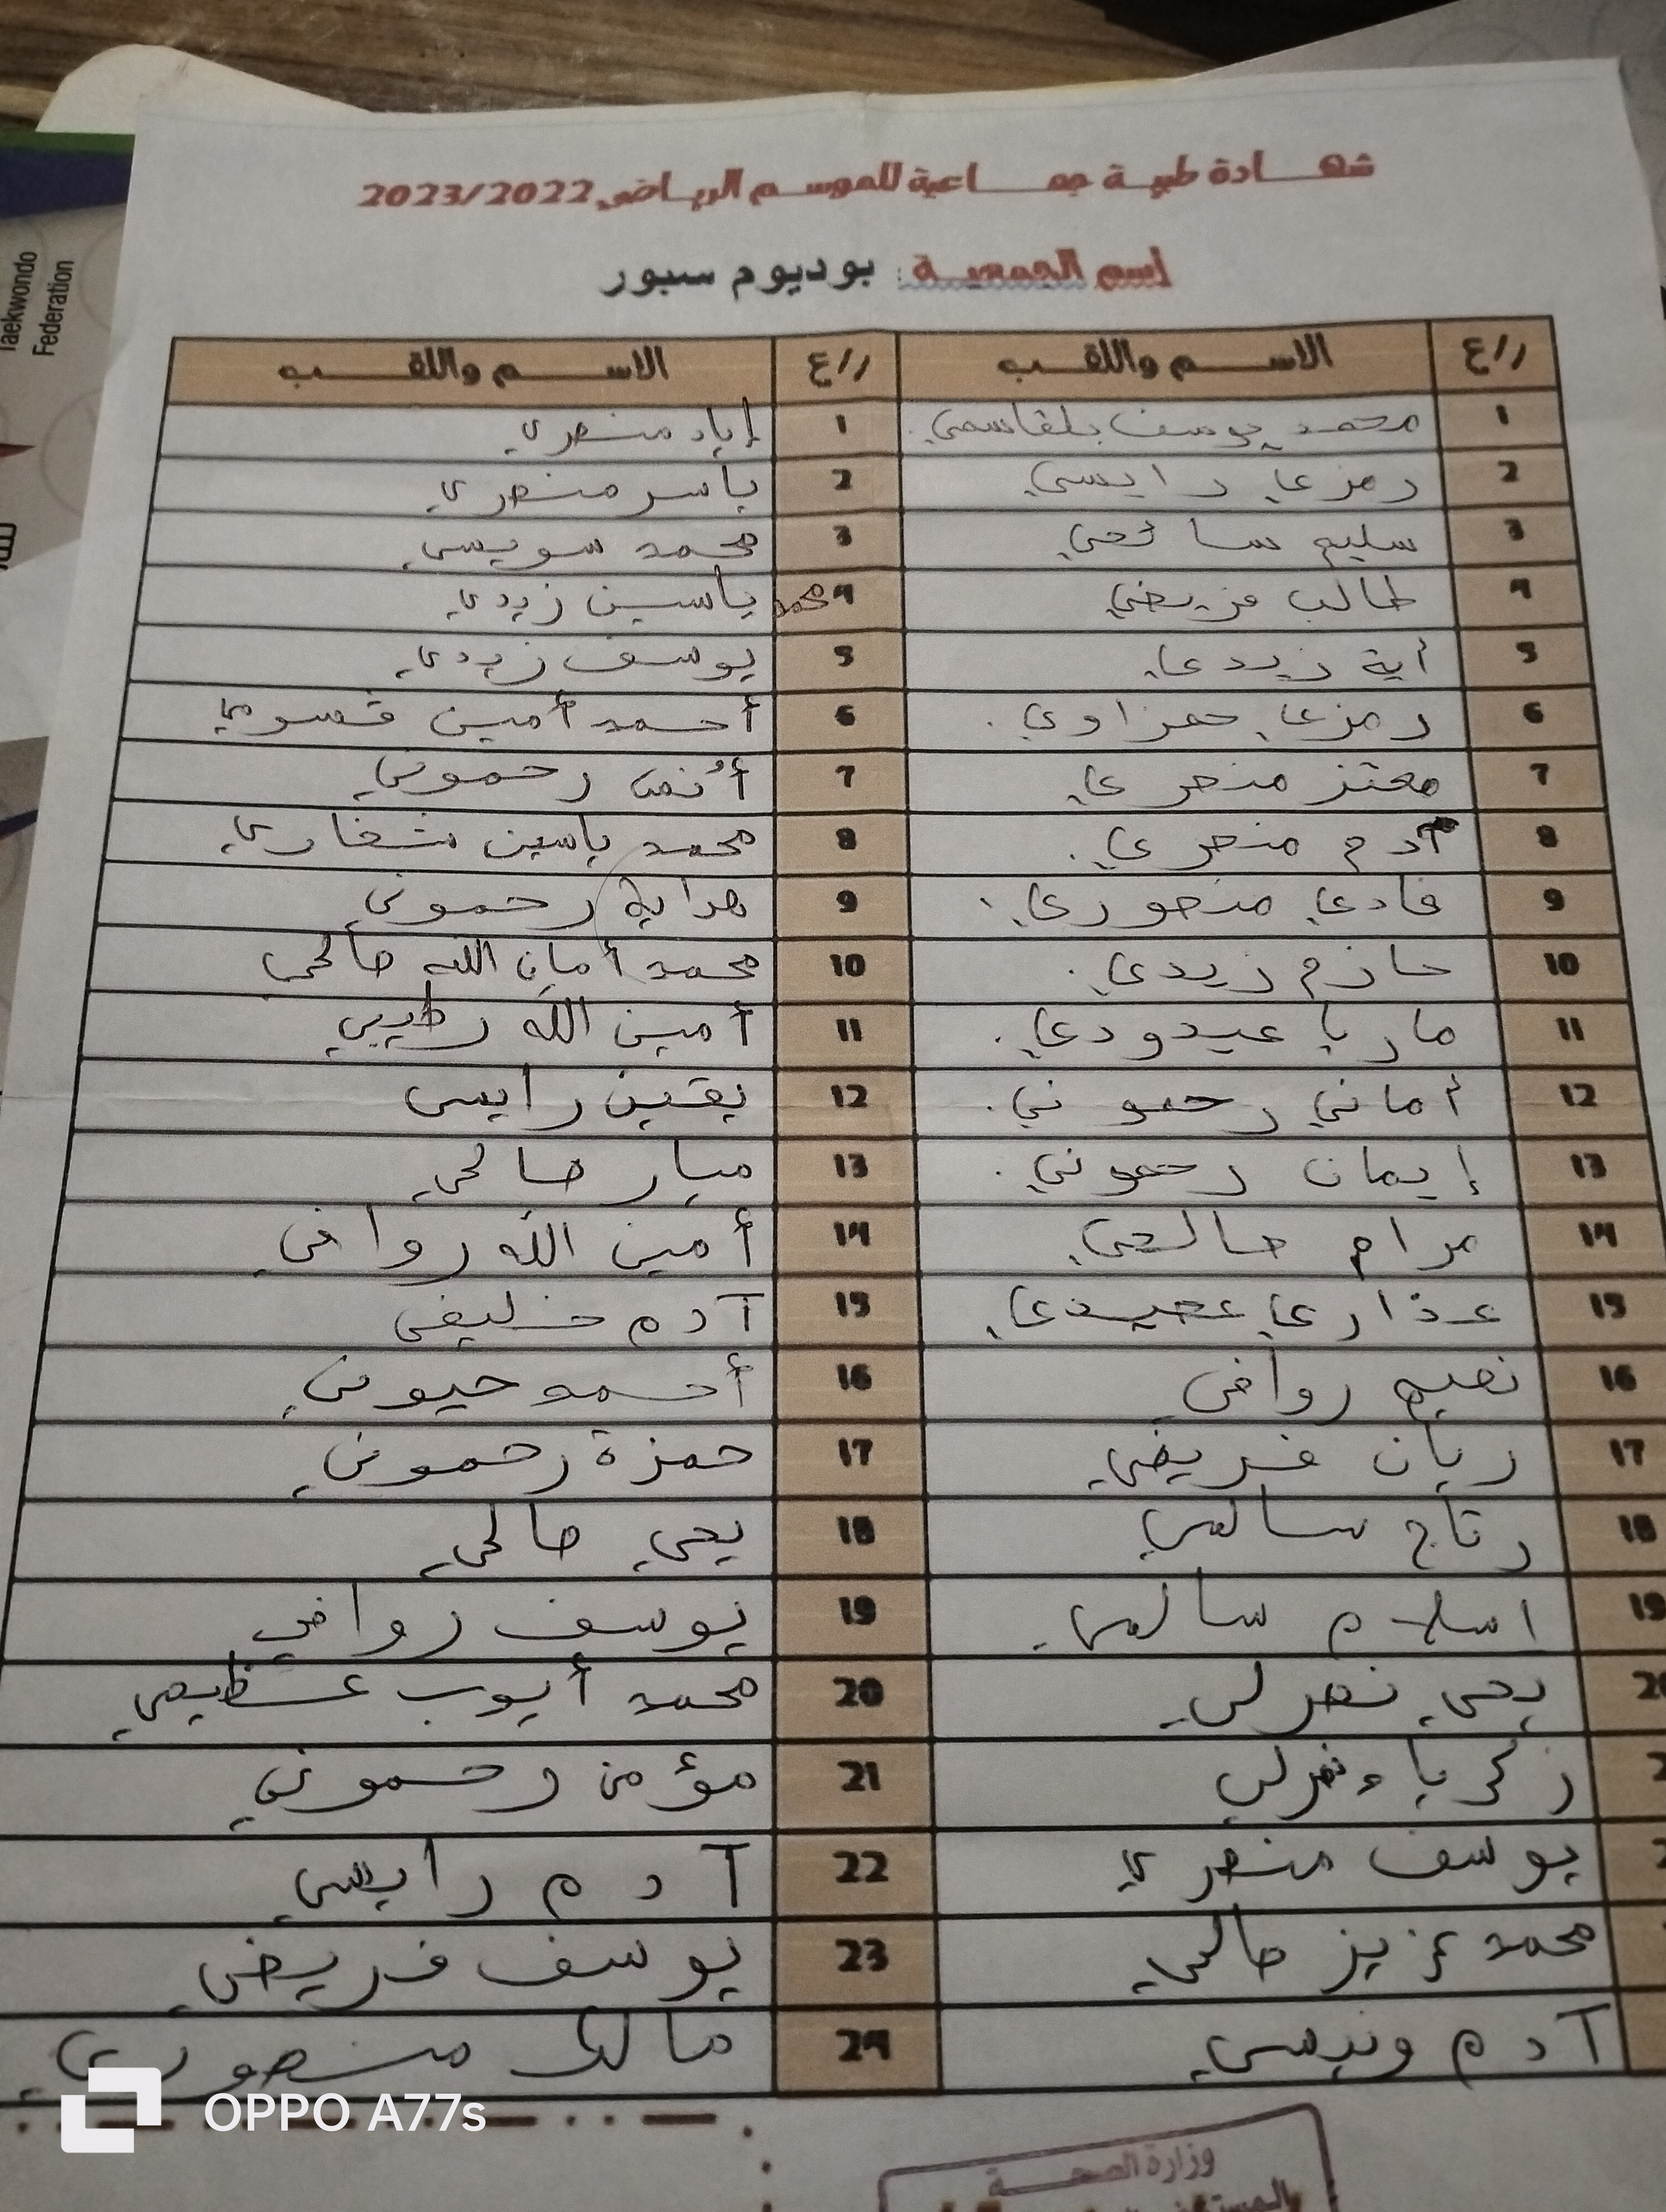 شهادة طبية جماعية للموسم الرياضي 2023/2022
إسم الجمعية: بوديوم سبور
ر/ع الاسم واللقب ر/ع الاسم واللقب
1 محمد يوسف بلقاسمي 1 إياد منصري
2 رمزي رايسي 2 ياسر منصري
3 سليم صالحي 3 محمد سويسي
4 طالب فريضي 4 محمد ياسين زيدي
5 أية زيدي 5 يوسف زيدي
6 رمزي حمزاوي 6 أحمد أمين قسومي
7 معتز منصري 7 أنس رحموني
8 آدم منصري 8 محمد ياسين شغاري
9 فادي منصوري 9 هداية رحموني
10 حازم زيدي 10 محمد أمان الله صالحي
11 ماريا عيدودي 11 أمين الله رطيبي
12 أماني رحموني 12 يقين رايسي
13 إيمان رحموني 13 ميار صالحي
14 مرام صالحي 14 أمين الله روافي
15 عذاري عبيدي 15 آدم خليفي
16 نعيم روافي 16 أحمد حيوني
17 ريان فريضي 17 حمزة رحموني
18 رتاج سالمي 18 يحي صالحي
19 اسلام سالمي 19 يوسف روافي
20 يحي نصرلي 20 محمد أيوب عظيمي
زكرياء نصرلي 21 مؤمن رحموني
يوسف منصري 22 آدم رايسي
محمد عزيز صالحي 23 يوسف فريضي
آدم ونيسي 24 مالك منصوري
وزارة الصحة
Taekwondo
Federation
OPPO A77s